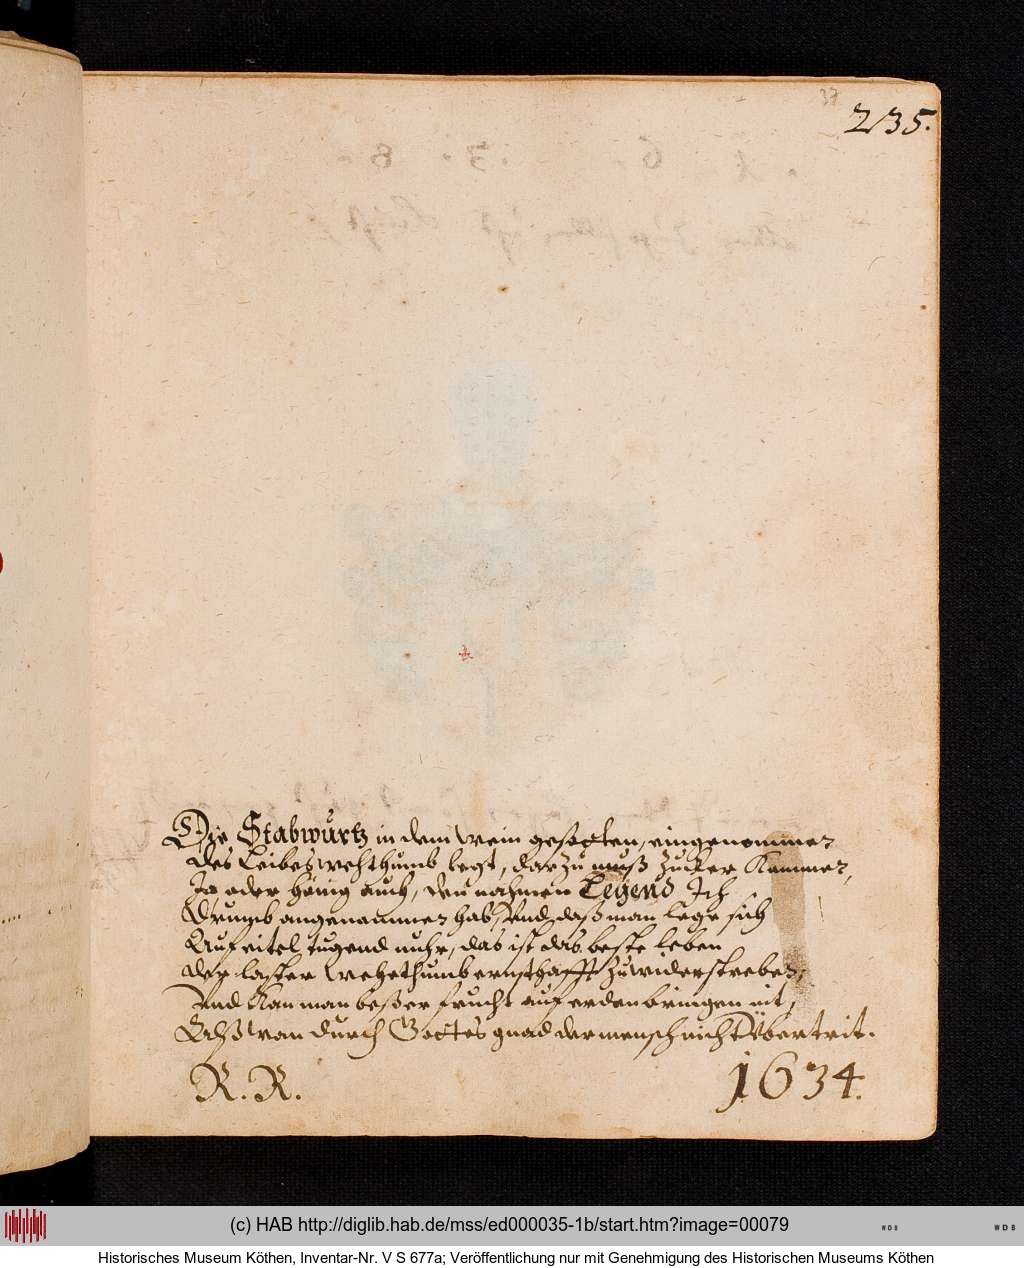 37
235.
Die Stabwurtz in dem wein gesotten, eingenommen
des Leibes wehthumb legt, darzu muß Zucker Kommen,
Ja oder hönig auch, den nahmen Legend Ich
Drumb angenommen hab, Vnd daß man lege sich
Auf eitel tugend nuhr, das ist das beste leben
der laster wehethumb ernsthafft zuwiderstreben;
Vnd kan man beßer frucht auf erden bringen nit,
Alß wan durch Gottes gnad der mensch nicht Übertrit.
R. R. 1634.
(c) HAB http://diglib.hab.de/mss/ed000035-1b/start.htm?image=00079
WDB WDB
Historisches Museum Köthen, Inventar-Nr. V S 677a; Veröffentlichung nur mit Genehmigung des Historischen Museums Köthen